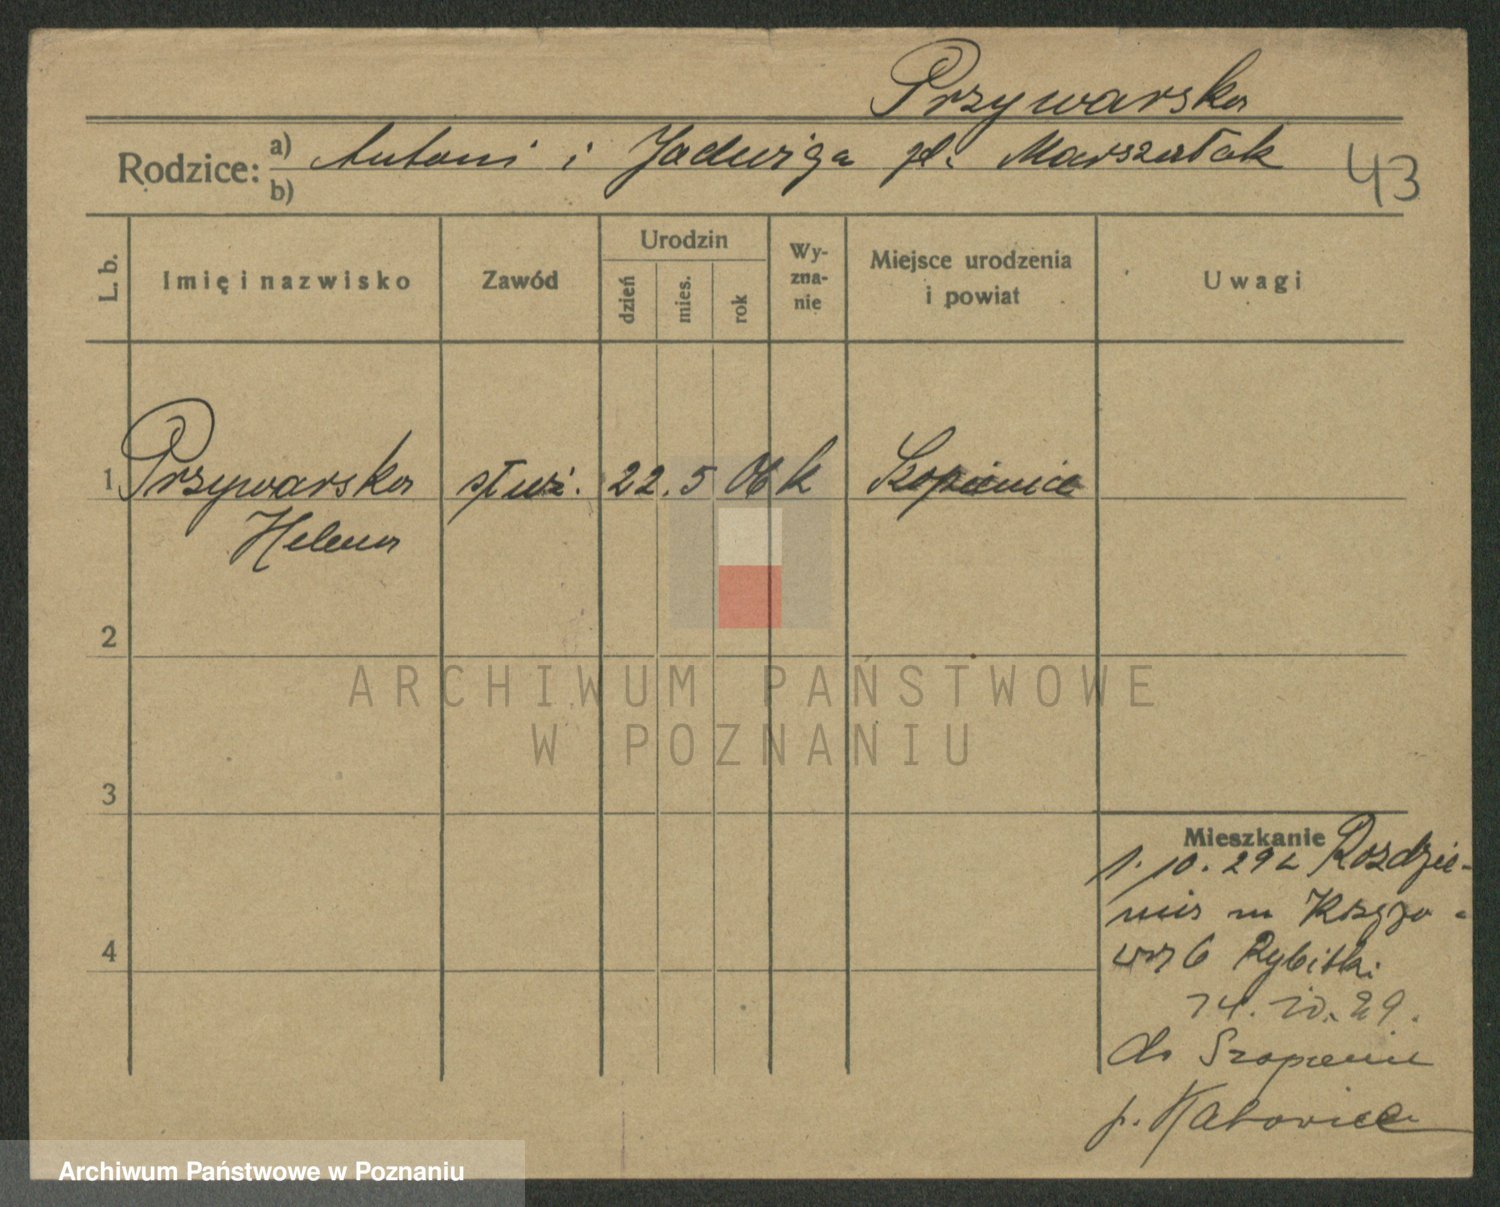 Przywarska
Rodzice: a) Antoni i Jadwiga pł. Marszałek 43
b)
L. b.
Imię i nazwisko
Zawód
Urodzin
dzień
mies.
rok
Wy-
zna-
nie
Miejsce urodzenia
i powiat
Uwagi
1 Przywarska służ. 22. 5 06 k Szopienice
Helena
2
ARCHIWUM PAŃSTWOWE
W POZNANIU
3
Mieszkanie
1. 10. 29 z Rozdzie-
nia
6 Rybitki
14. 10. 29.
do Szopienic
p. Katowice
4
Archiwum Państwowe w Poznaniu